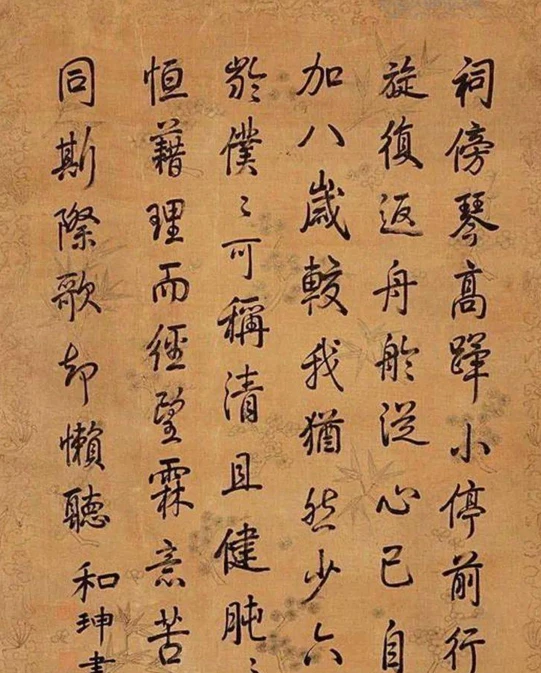 祠傍琴高蹕小停前行
旋復返舟舲從心已自
加八歲較我猶然少六
於僕〻可稱清且健肫〻
恒藉理而徑望霖意苦
同斯際歌却懶聽
和珅書